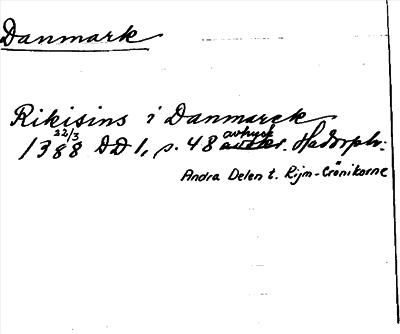 Danmark
Rikisins i Danmarck
22/3 avtryck
1388 DD1, s. 48 Hadorph:
Andra Delen t. Rijm-Crönikorne